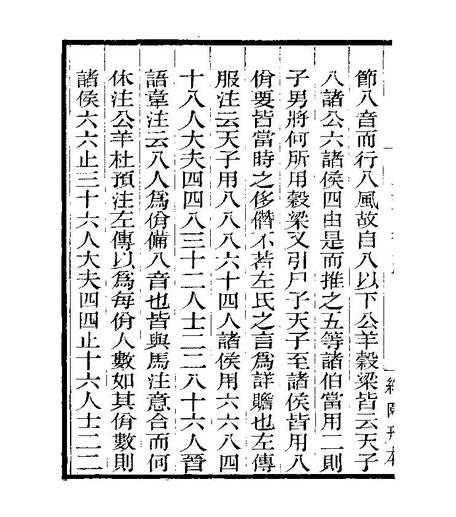 節八音而行八風故自八以下公羊穀梁皆云天子
八諸公六諸侯四由是而推之五等諸伯當用二則
子男將何所用穀梁又引尸子天子至諸侯皆用八
佾要皆當時之侈僭不若左氏之言為詳贍也左傳
服注云天子用八八八六十四人諸侯用六六八四
十八人大夫四四八三十二人士二二八十六人晉
語韋注云八人為佾備八音也皆與馬注意合而何
休注公羊杜預注左傳以為每佾人數如其佾數則
諸侯六六止三十六人大夫四四止十六人士二二